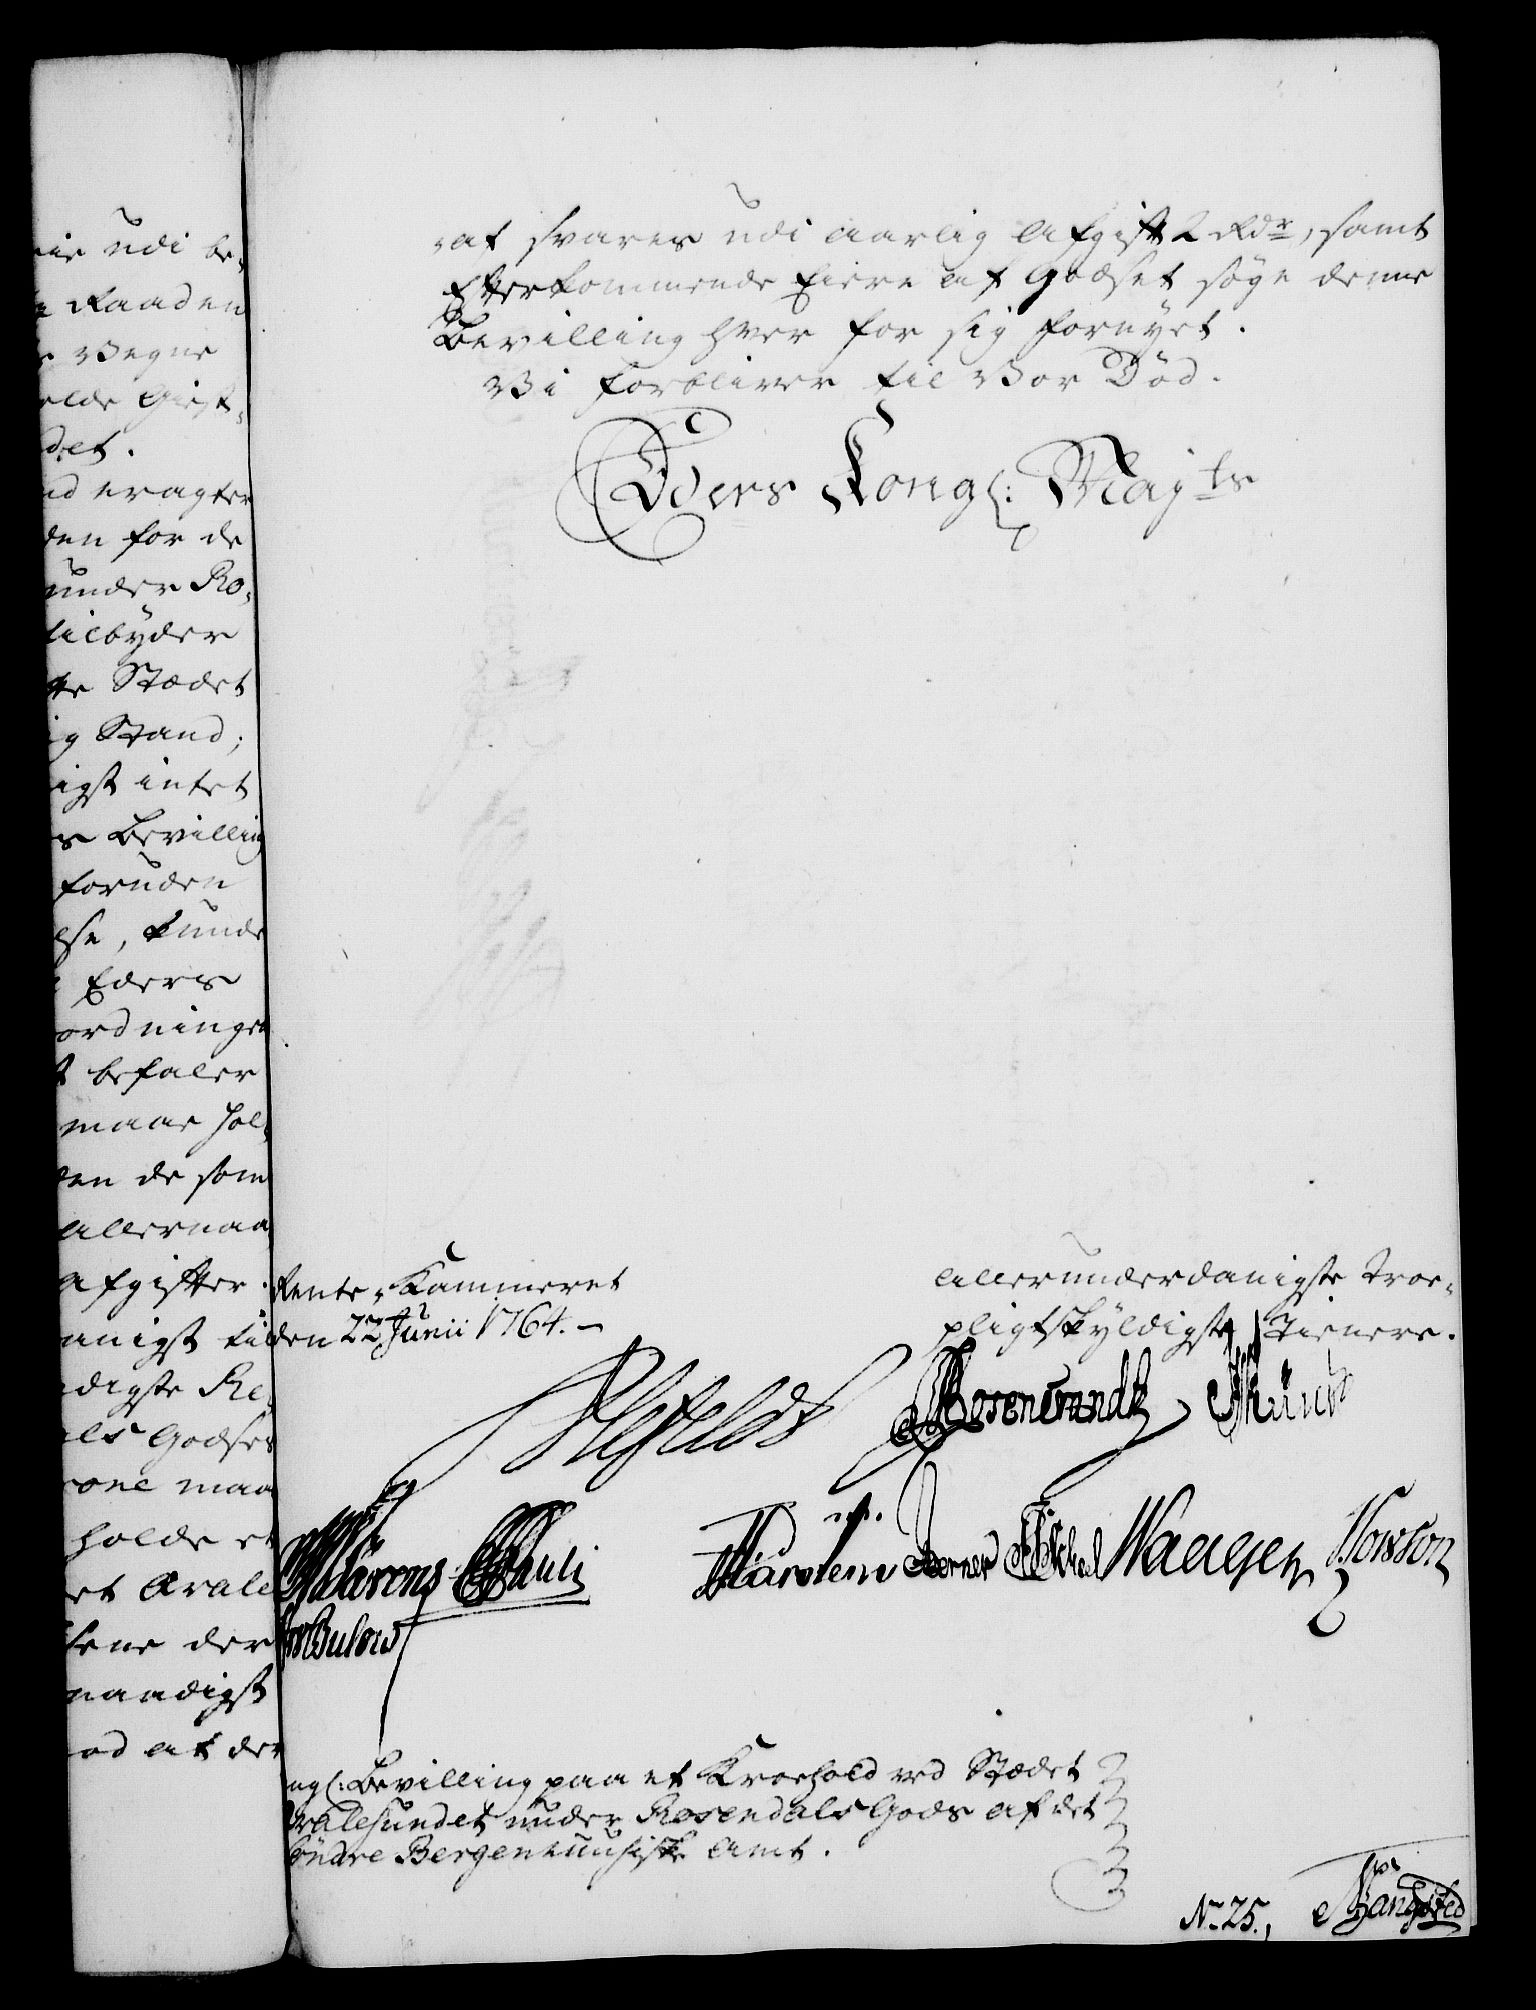 ie udi be-
Raaden
Vegne
elde Giest-
det.
nd eragter
den for de
under Ro-
tilbyder
tte Stædet
ig Stand;
igst intet
Bevilling
foruden
lse, kunde
Eders
ordningen
befaler
maae hol-
den de som
allernaa
afgifter.
anigst til
digste Re-
als Godses
rone maa
holde et
et Arale
sene der
naadigst
od at der
-af svares udi aarlig Afgift 2 Rdr, samt
Efterkommende Eiere af Godset søge denne
Bevilling hver for sig fornÿet.
Vi forbliver til Vor Død.
Eders Kongl: Mayts
Rente-Kammeret
den 22 Junii 1764.-
allerunderdanigste troe-
pligtskÿldigste Tienere.
Rosencrandtz
Pauli
Berner Waagen
Bulow
ngl: Bevilling paa et Kroehold ved Stædet
Aralesundet under Rosendals Gods af det
Söndre Bergenhuusiske Amt.
No 25.,